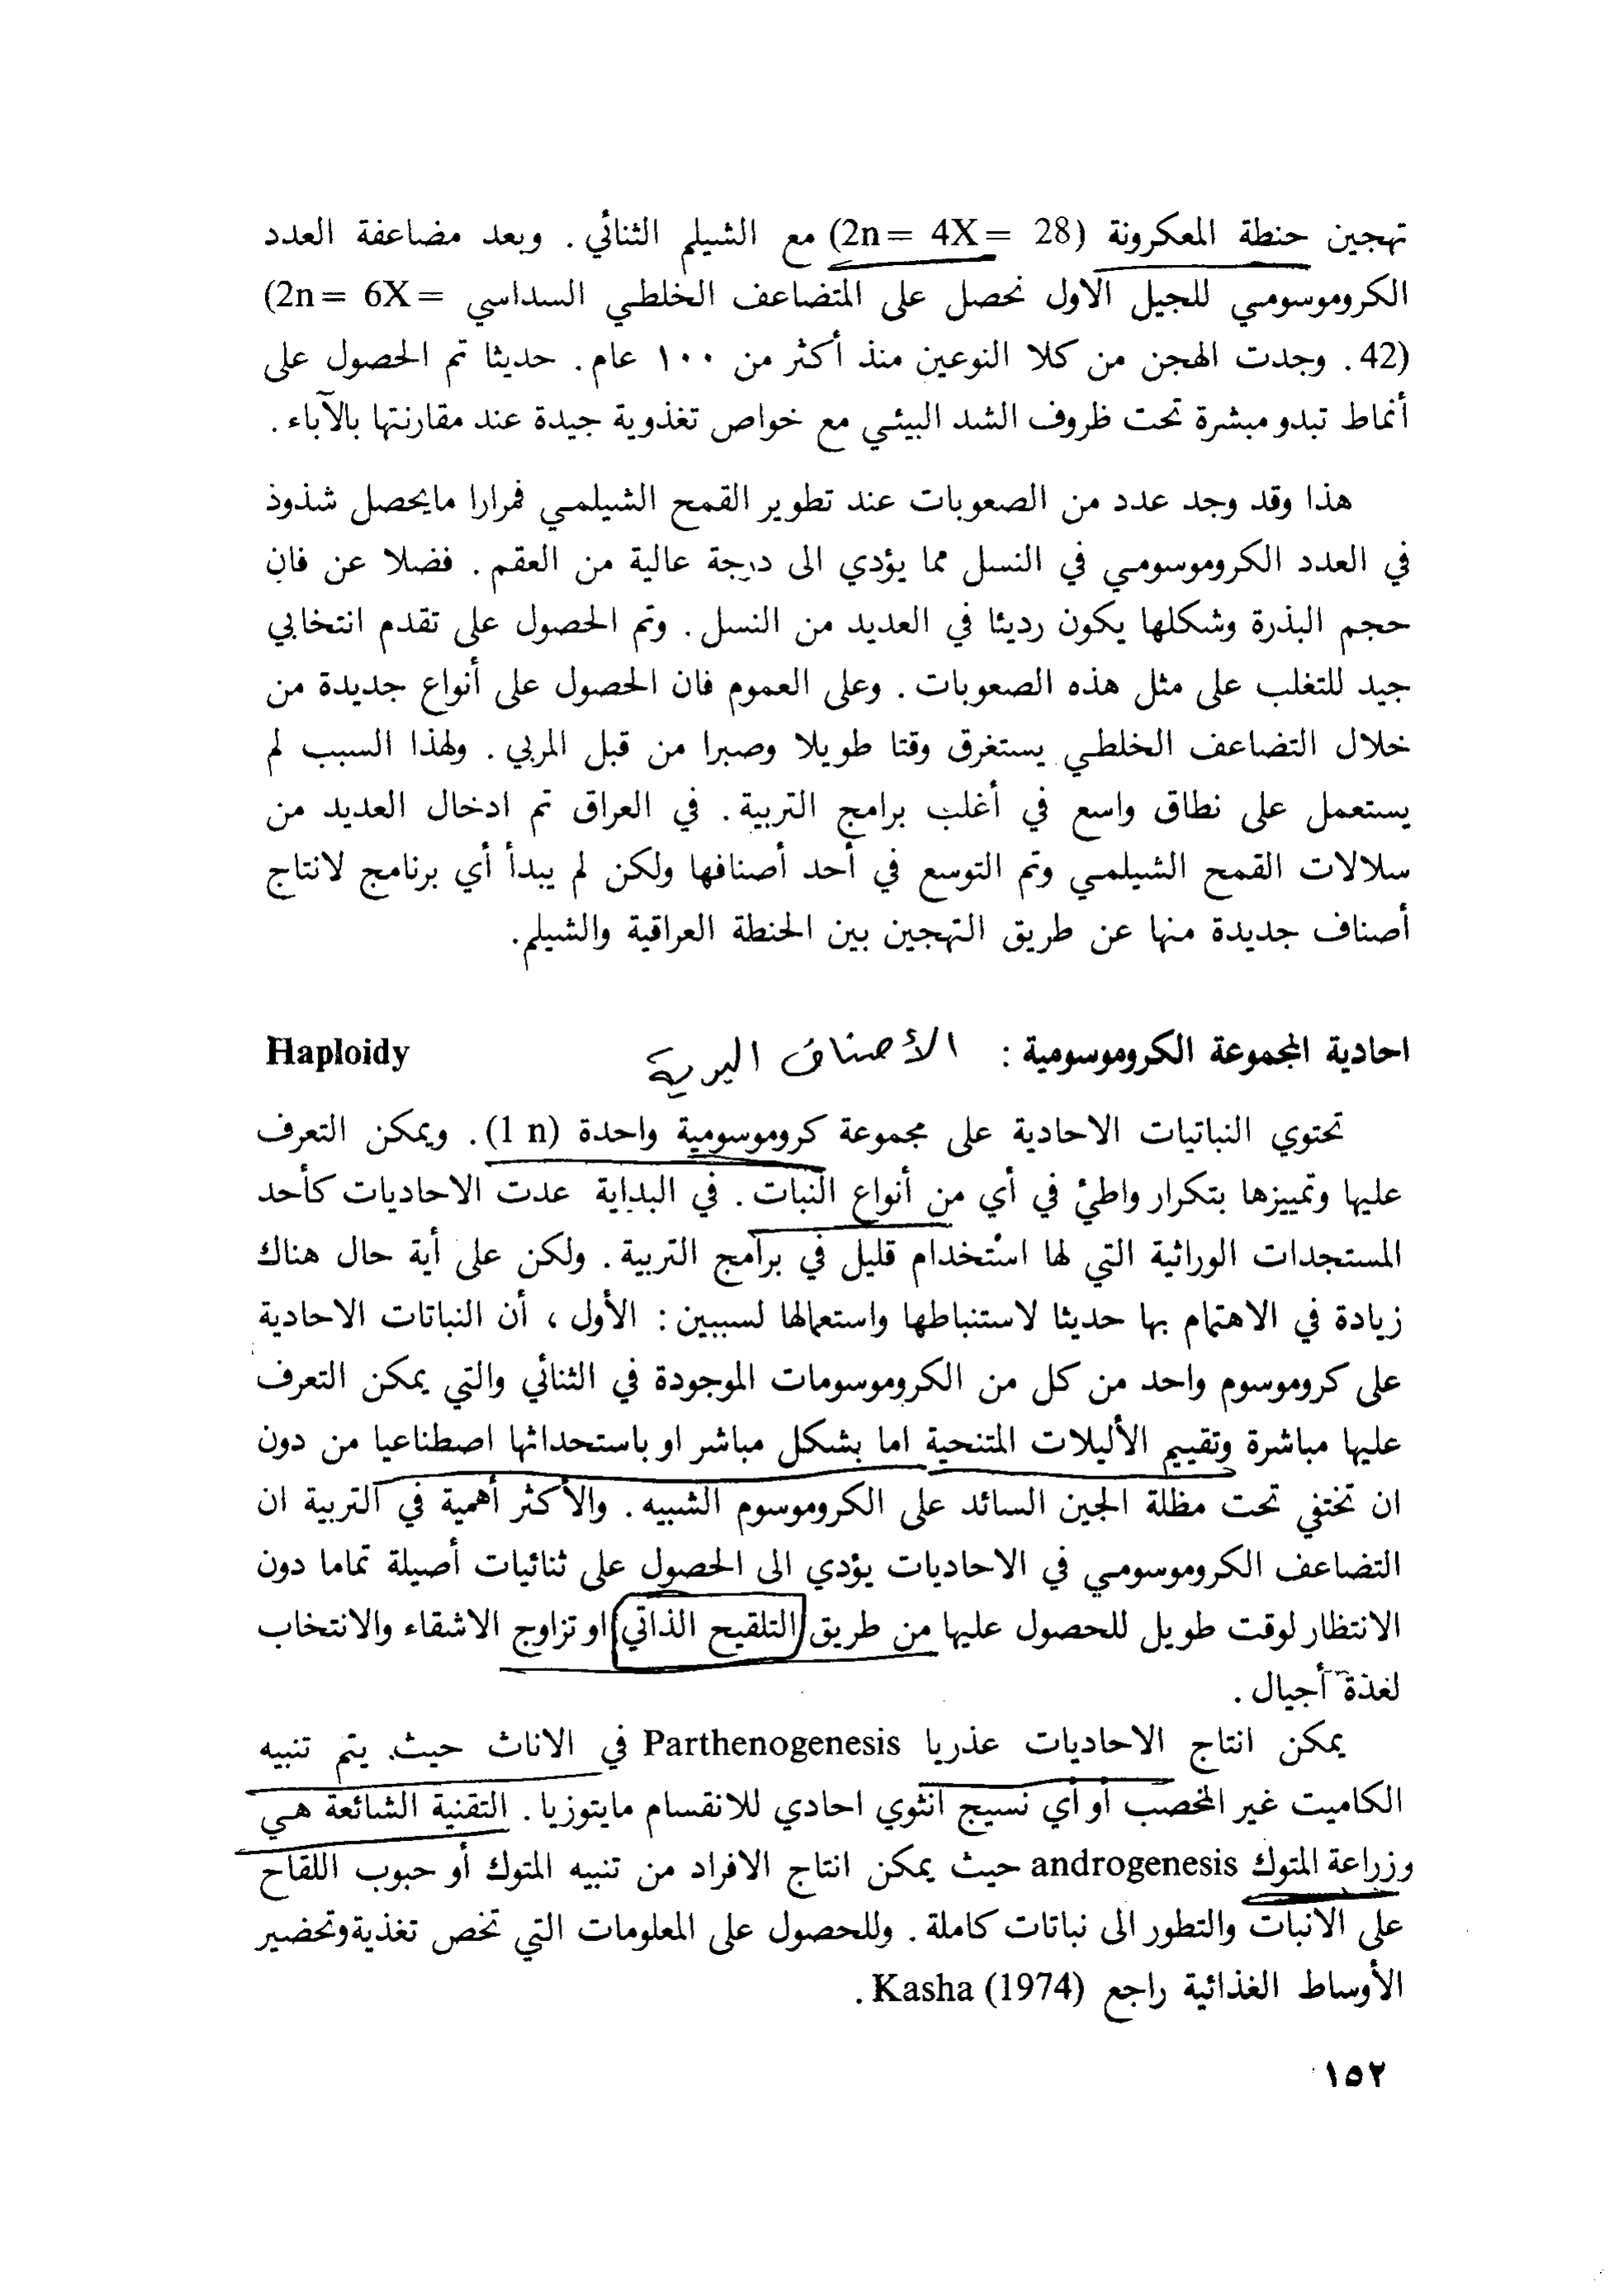 تهجين حنطة المعكرونة (2n= 4X= 28) مع الشيلم الثنائي . وبعد مضاعفة العدد
الكروموسومي للجيل الاول نحصل على المتضاعف الخلطي السداسي (2n= 6X=
42) . وجدت الهجن من كلا النوعين منذ أكثر من ١٠٠ عام . حديثا تم الحصول على
أنماط تبدو مبشرة تحت ظروف الشد البيئي مع خواص تغذوية جيدة عند مقارنتها بالآباء .
هذا وقد وجد عدد من الصعوبات عند تطوير القمح الشيلمي فمرارا مايحصل شذوذ
في العدد الكروموسومي في النسل مما يؤدي الى درجة عالية من العقم . فضلا عن فان
حجم البذرة وشكلها يكون رديئا في العديد من النسل . وتم الحصول على تقدم انتخابي
جيد للتغلب على مثل هذه الصعوبات . وعلى العموم فان الحصول على أنواع جديدة من
خلال التضاعف الخلطي يستغرق وقتا طويلا وصبرا من قبل المربي . ولهذا السبب لم
يستعمل على نطاق واسع في أغلب برامج التربية . في العراق تم ادخال العديد من
سلالات القمح الشيلمي وتم التوسع في أحد أصنافها ولكن لم يبدأ أي برنامج لانتاج
أصناف جديدة منها عن طريق التهجين بين الحنطة العراقية والشيلم.
احادية المجموعة الكروموسومية : الأصناف البرية Haploidy
تحتوي النباتيات الاحادية على مجموعة كروموسومية واحدة (1 n) . ويمكن التعرف
عليها وتمييزها بتكرار واطئ في أي من أنواع النبات . في البداية عدت الاحاديات كأحد
المستجدات الوراثية التي لها استخدام قليل في برامج التربية . ولكن على أية حال هناك
زيادة في الاهتمام بها حديثا لاستنباطها واستعمالها لسببين : الأول ، أن النباتات الاحادية
على كروموسوم واحد من كل من الكروموسومات الموجودة في الثنائي والتي يمكن التعرف
عليها مباشرة وتقييم الأليلات المتنحية اما بشكل مباشر او باستحداثها اصطناعيا من دون
ان تختفي تحت مظلة الجين السائد على الكروموسوم الشبيه . والأكثر أهمية في التربية ان
التضاعف الكروموسومي في الاحاديات يؤدي الى الحصول على ثنائيات أصيلة تماما دون
الانتظار لوقت طويل للحصول عليها من طريق التلقيح الذاتي او تزاوج الاشقاء والانتخاب
لغذة أجيال .
يمكن انتاج الاحاديات عذريا Parthenogenesis في الاناث حيث يتم تنبيه
الكاميت غير المخصب أو أي نسيج انثوي احادي للانقسام مايتوزيا . التقنية الشائعة هي
وزراعة المتوك androgenesis حيث يمكن انتاج الافراد من تنبيه المتوك أو حبوب اللقاح
على الانبات والتطور الى نباتات كاملة . وللحصول على المعلومات التي تخص تغذيةوتحضير
الأوساط الغذائية راجع Kasha (1974) .
١٥٢